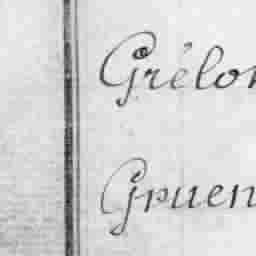 Grélon
Gruen